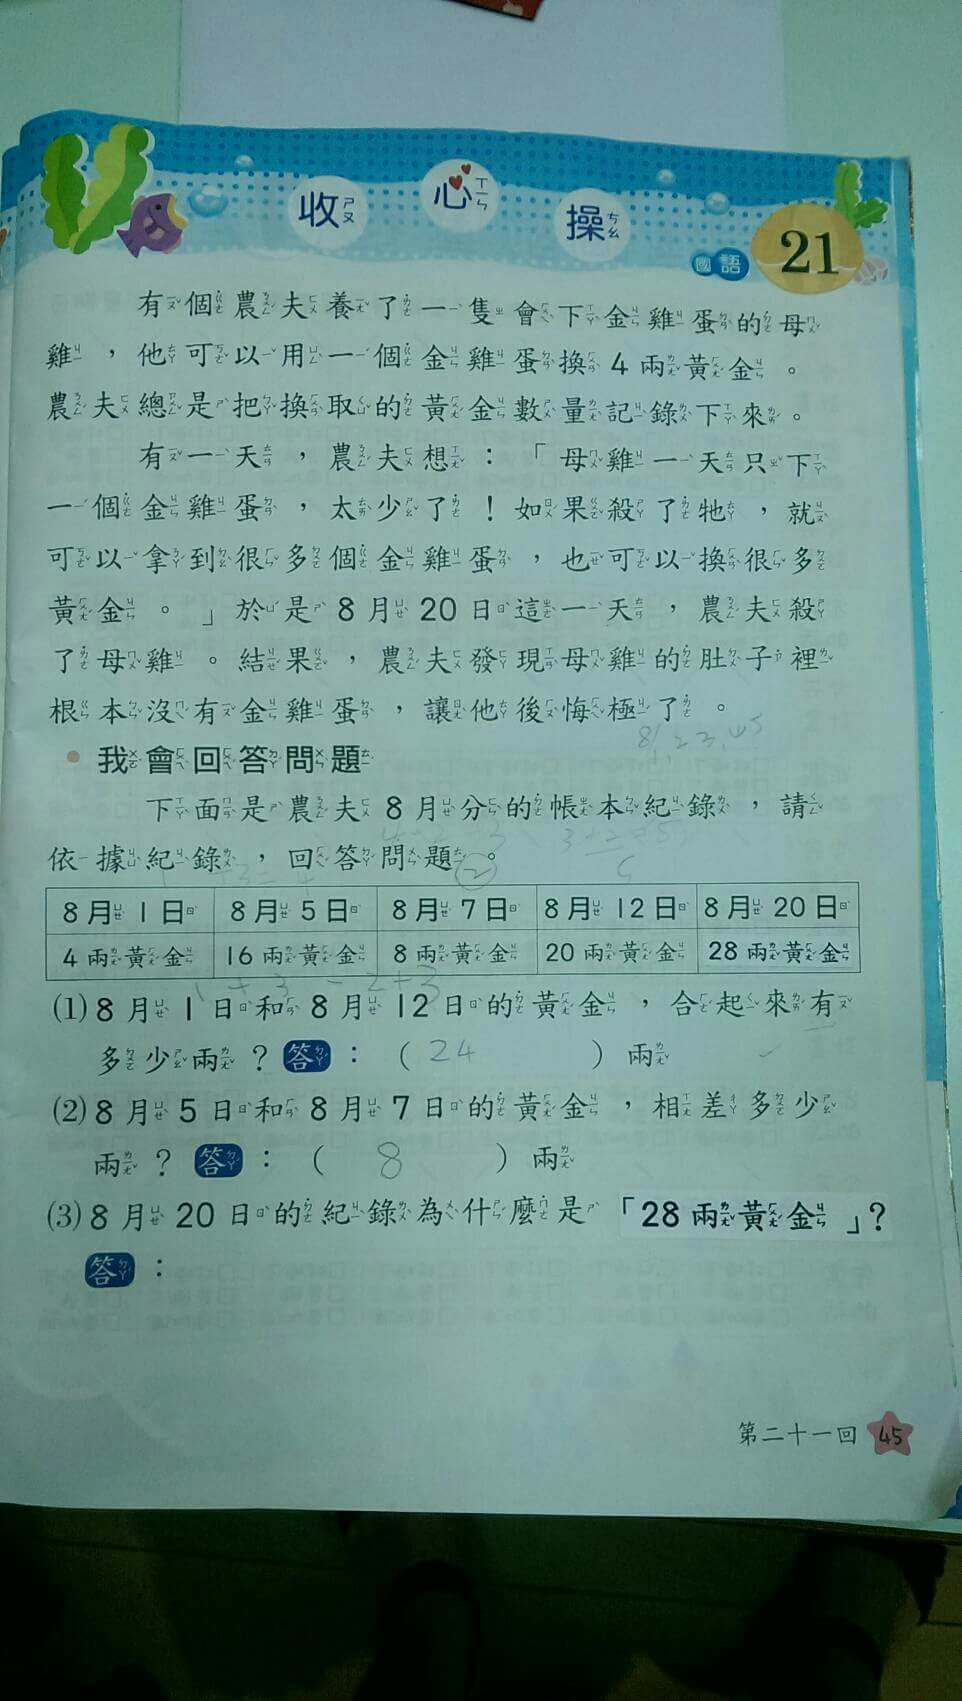 收心操
國語 21
有個農夫養了一隻會下金雞蛋的母
雞，他可以用一個金雞蛋換4兩黃金。
農夫總是把換取的黃金數量記錄下來。
有一天，農夫想：「母雞一天只下
一個金雞蛋，太少了！如果殺了牠，就
可以拿到很多個金雞蛋，也可以換很多
黃金。」於是8月20日這一天，農夫殺
了母雞。結果，農夫發現母雞的肚子裡
根本沒有金雞蛋，讓他後悔極了。
我會回答問題
下面是農夫8月分的帳本紀錄，請
依據紀錄，回答問題。
8月1日 8月5日 8月7日 8月12日 8月20日
4兩黃金 16兩黃金 8兩黃金 20兩黃金 28兩黃金
(1)8月1日和8月12日的黃金，合起來有
多少兩？答：（24）兩
(2)8月5日和8月7日的黃金，相差多少
兩？答：（8）兩
(3)8月20日的紀錄為什麼是「28兩黃金」？
答：
第二十一回 45